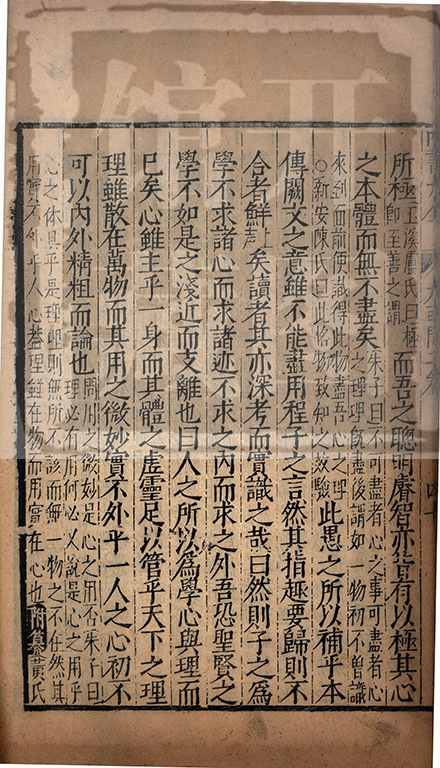 所極玉溪盧氏曰極即至善之謂而吾之聰明睿智亦皆有以極其心
之本體而無不盡矣朱子曰不可盡者心之事可盡者心之理理既盡後謂如一物初不曾識
來到面前便識得此物盡吾心之理○新安陳氏曰此格物致知之效驗此愚之所以補乎本
傳闕文之意雖不能盡用程子之言然其指趣要歸則不
合者鮮上聲矣讀者其亦深考而實識之哉曰然則子之為
學不求諸心而求諸迹不求之內而求之外吾恐聖賢之
學不如是之淺近而支離也曰人之所以為學心與理而
已矣心雖主乎一身而其體之虛靈足以管乎天下之理
理雖散在萬物而其用之微妙實不外乎一人之心初不
可以內外精粗而論也問用之微妙是心之用否朱子曰理必有用何必又說是心之用乎
心之体具乎是理理則無所不該而無一物之不在然其
用實不外乎人心蓋理雖在物而用實在心也附纂黃氏